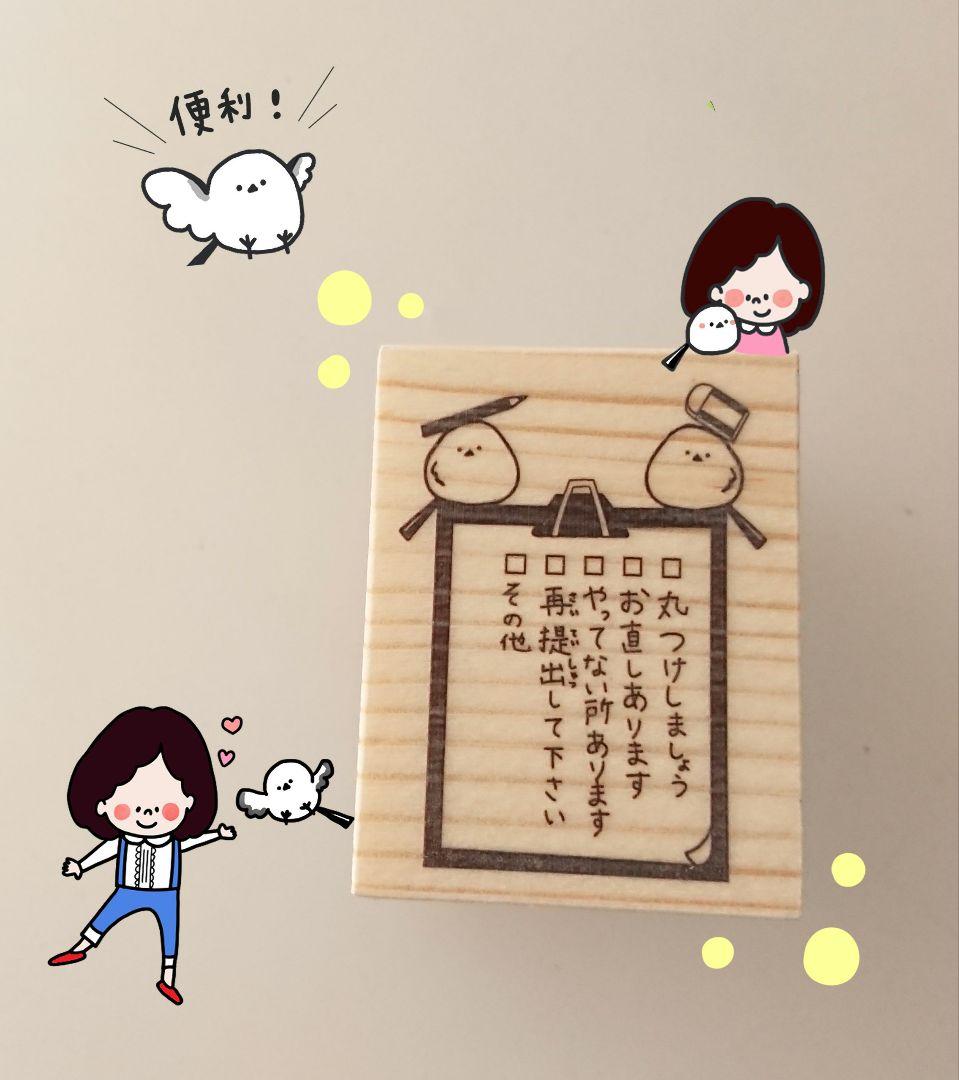 便利！
□丸つけしましょう
□お直しあります
□やってない所あります
□再提出して下さい
さいていしゅつ
□その他